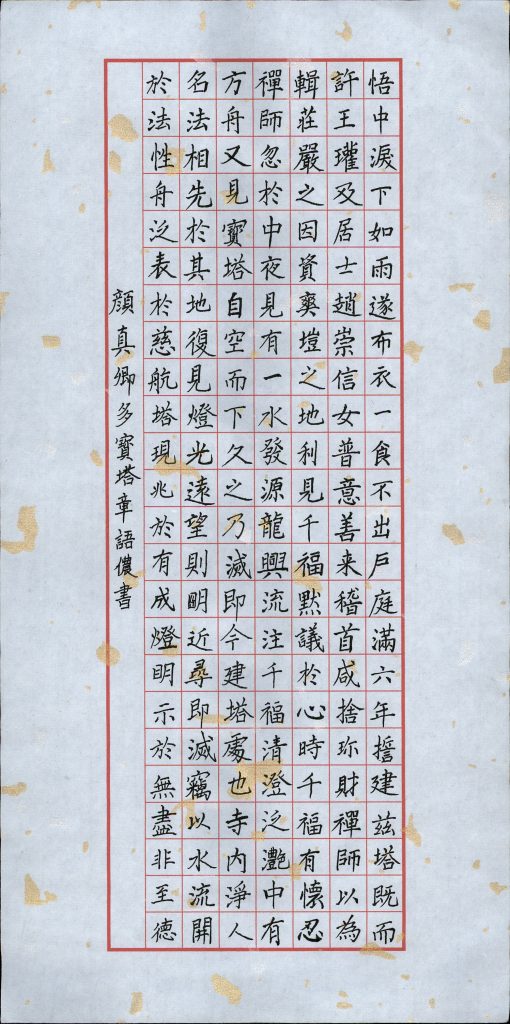 悟中淚下如雨遂布衣一食不出戶庭滿六年誓建茲塔既而
許王瓘及居士趙崇信女普意善来稽首咸捨珎財禪師以為
輯莊嚴之因資爽塏之地利見千福默議於心時千福有懷忍
禪師忽於中夜見有一水發源龍興流注千福清澄泛灧中有
方舟又見寶塔自空而下久之乃滅即今建塔處也寺内淨人
名法相先於其地復見燈光遠望則明近尋即滅竊以水流開
於法性舟泛表於慈航塔現兆於有成燈明示於無盡非至德
顏真卿多寶塔章語儂書